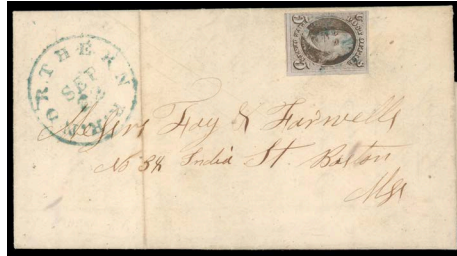 NORTHERN R.
SEP
Messrs Fay & Farwells
No 34 India St. Boston
Mss